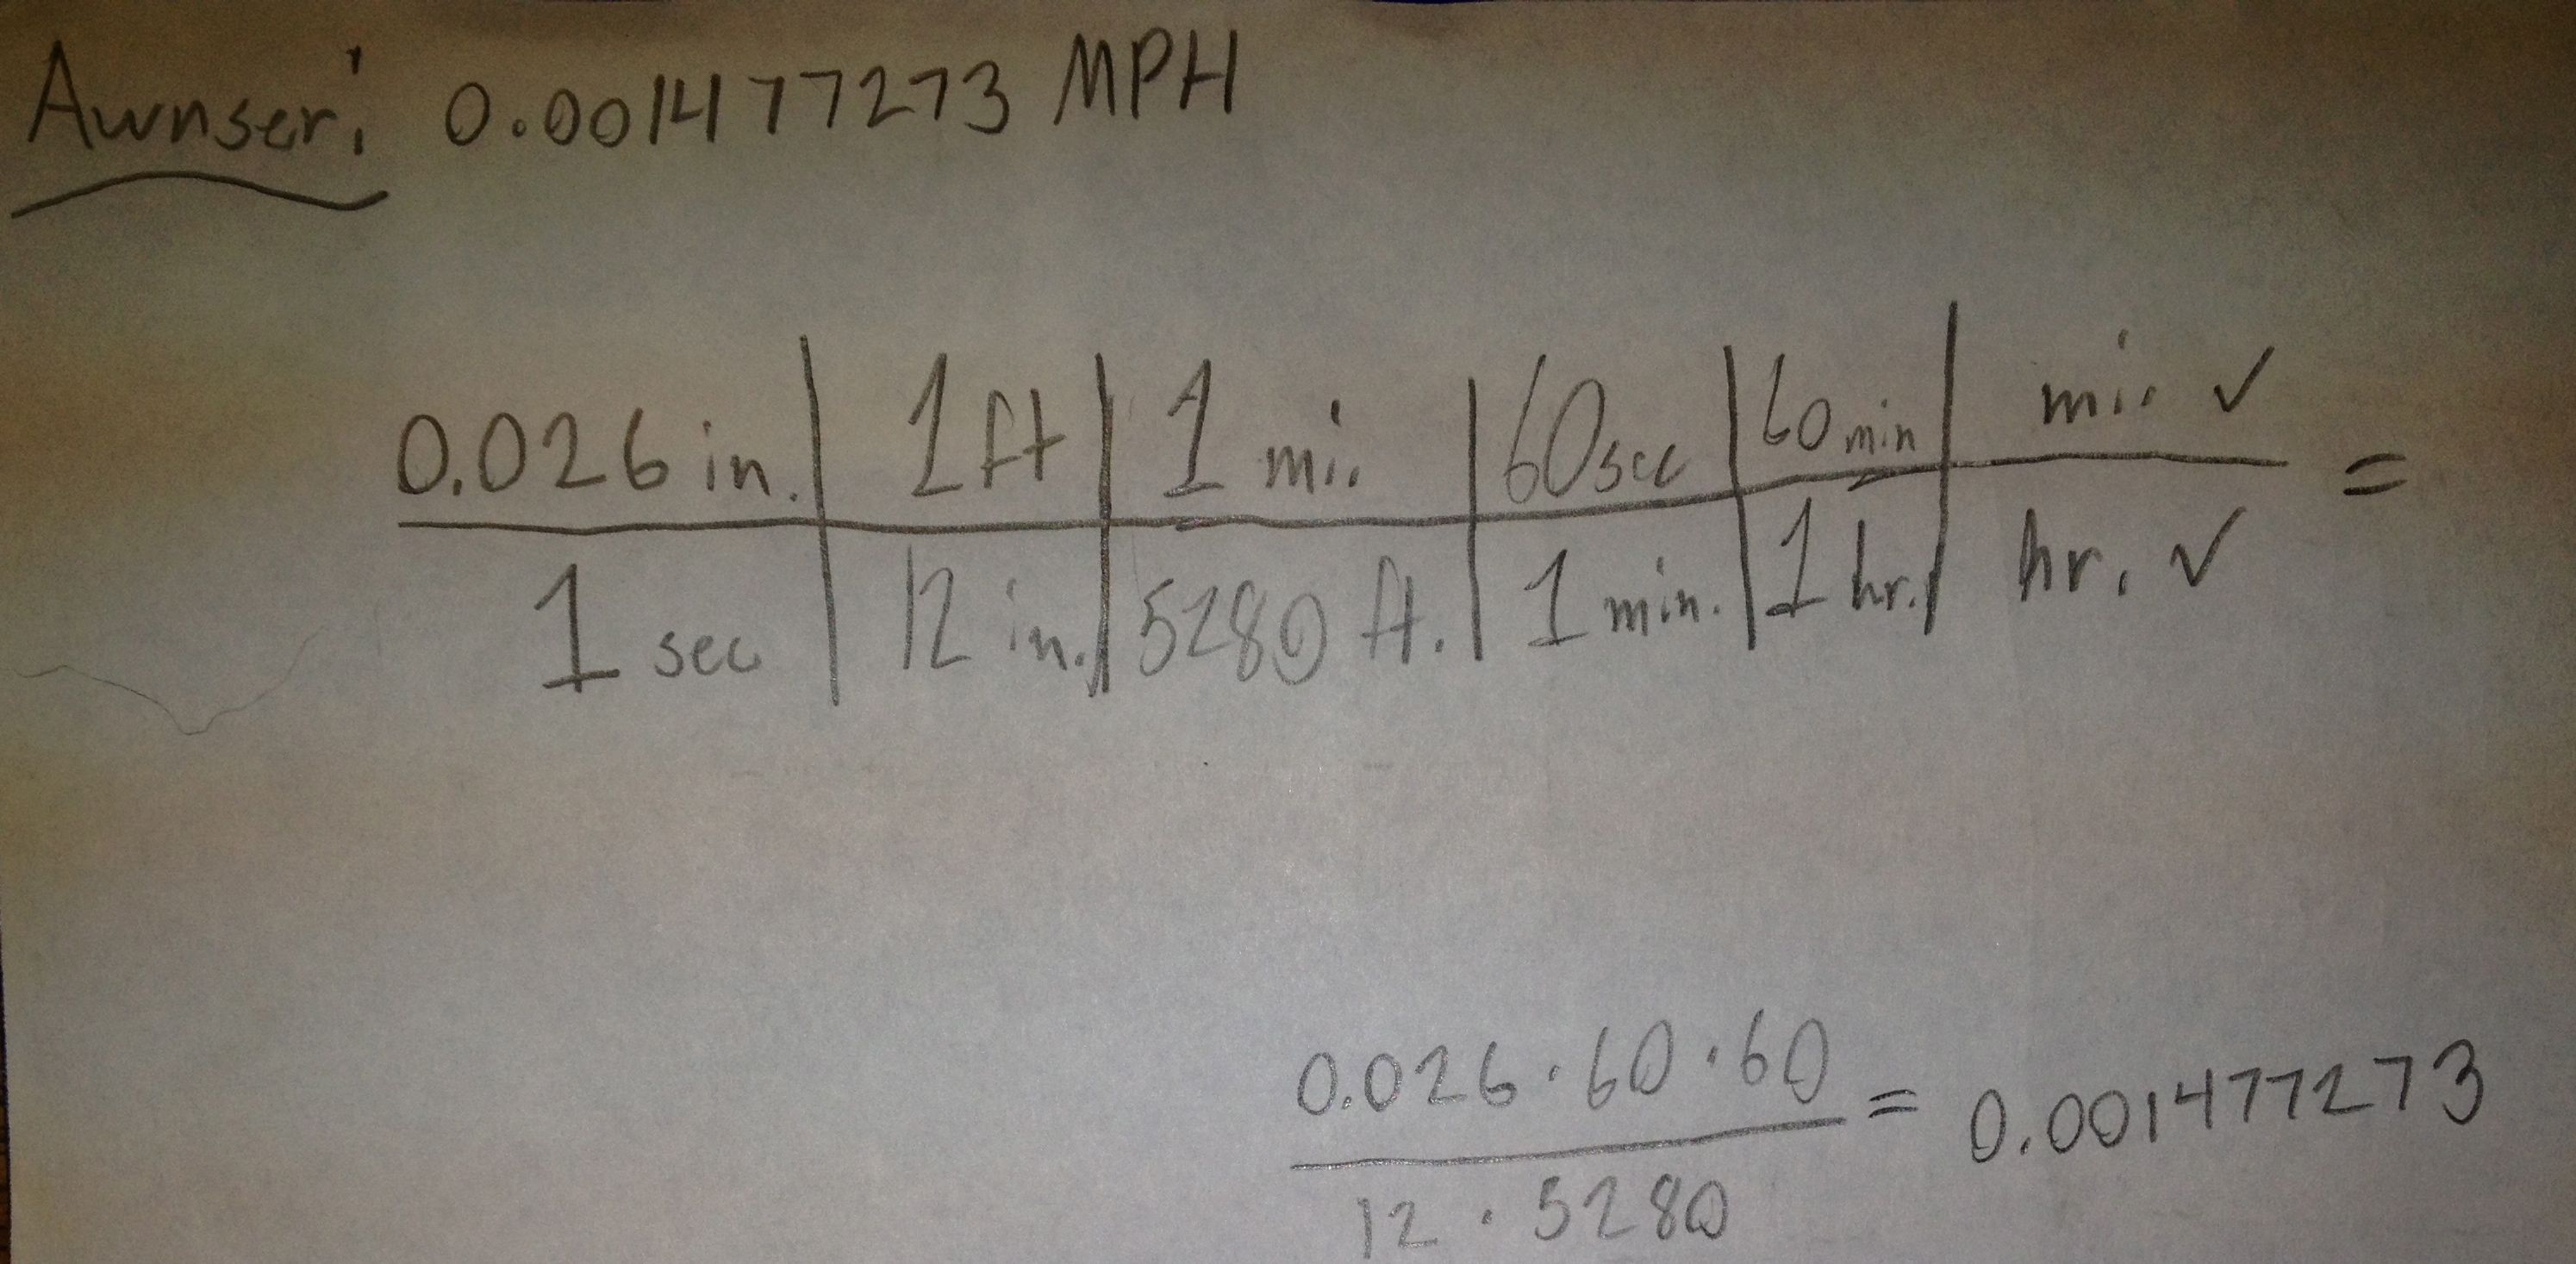 Awnser: 0.001477273 MPH
0.026 in. | 1 ft | 1 mi. | 60 sec | 60 min | mi. ✓ =
1 sec | 12 in. | 5280 ft. | 1 min. | 1 hr. | hr. ✓
0.026 · 60 · 60 = 0.001477273
12 · 5280